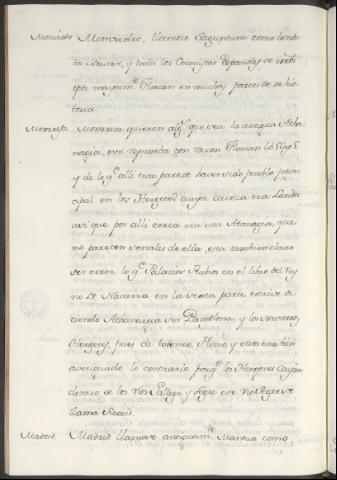 Monviedro Monviedro, llamose Saguntum como lo no-
ta Beuter, y todos los Coronistas Españoles de nros
tpos mayormte. Florian en muchas partes de su his
toria.
Manresa. Manresa quieren algs. que sea la antigua Atha
nagia, esto reprueba con razon Florian lib 5 cap 5
y de lo qe. alli trata parece haver sido pueblo prin
cipal en los Ilergetes cuya cavera era Lerida
asi que por alli cerca era esta Atanagia, que
no parecen señales de ella, esta tambien claro
ser error lo qe. Palacios Rubios en el libro del Rey
no de Navarra en la sexta parte escrive di
ciendo Athanagia ser Pamplona, y los Navarros
Ilergetes, pues de Ptolomeo, Plinio y otros esta bien
averiguado lo contrario porqe. los Ilergetes caian
dentro de los rios Gallego, y Segre este rio Segre se
llama Sicoris.
Madrid. Madrid llamose antiguamte. Mantua como